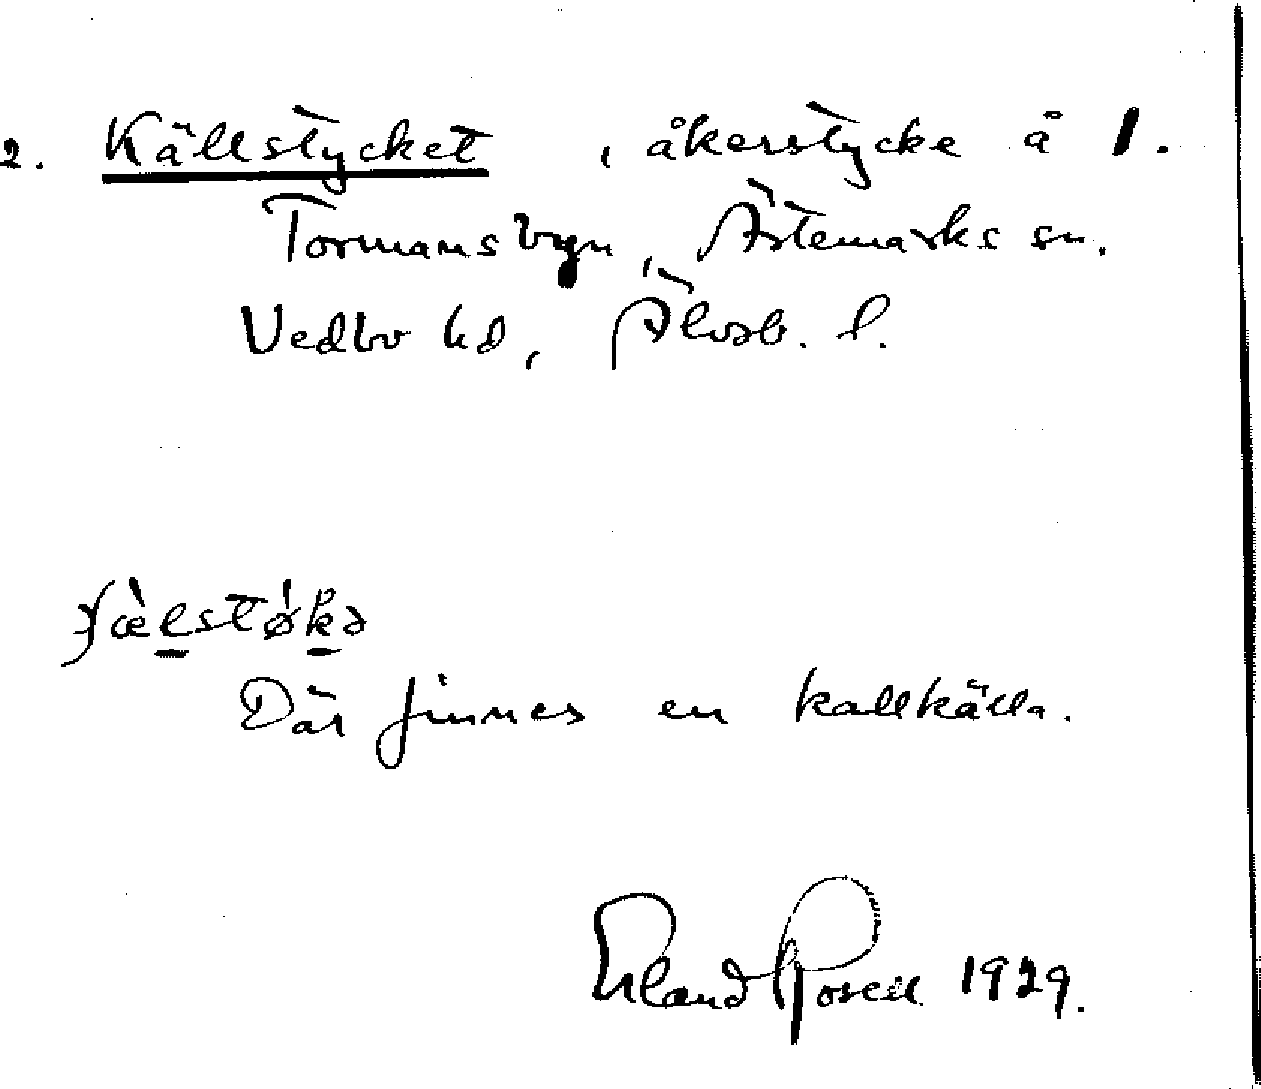 2. Källstycket, åkerstycke å 1.
Tormansbyn, Ärtemarks sn.
Vedbo hd, Älvsb. l.
Där finnes en kallkälla.
Erland Rosell 1929.